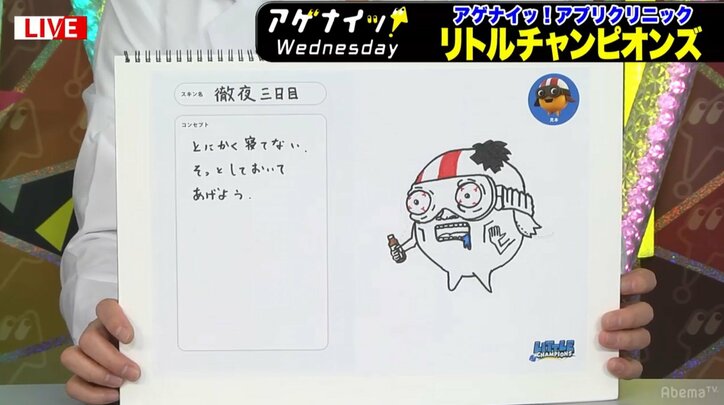 LIVE
アゲナイッ!
Wednesday
アゲナイッ!アプリクリニック
リトルチャンピオンズ
スキン名
徹夜三日目
コンセプト
とにかく寝てない.
そっとしておいて
あげよう.
見本
LITTLE
CHAMPIONS
AbemaTV.